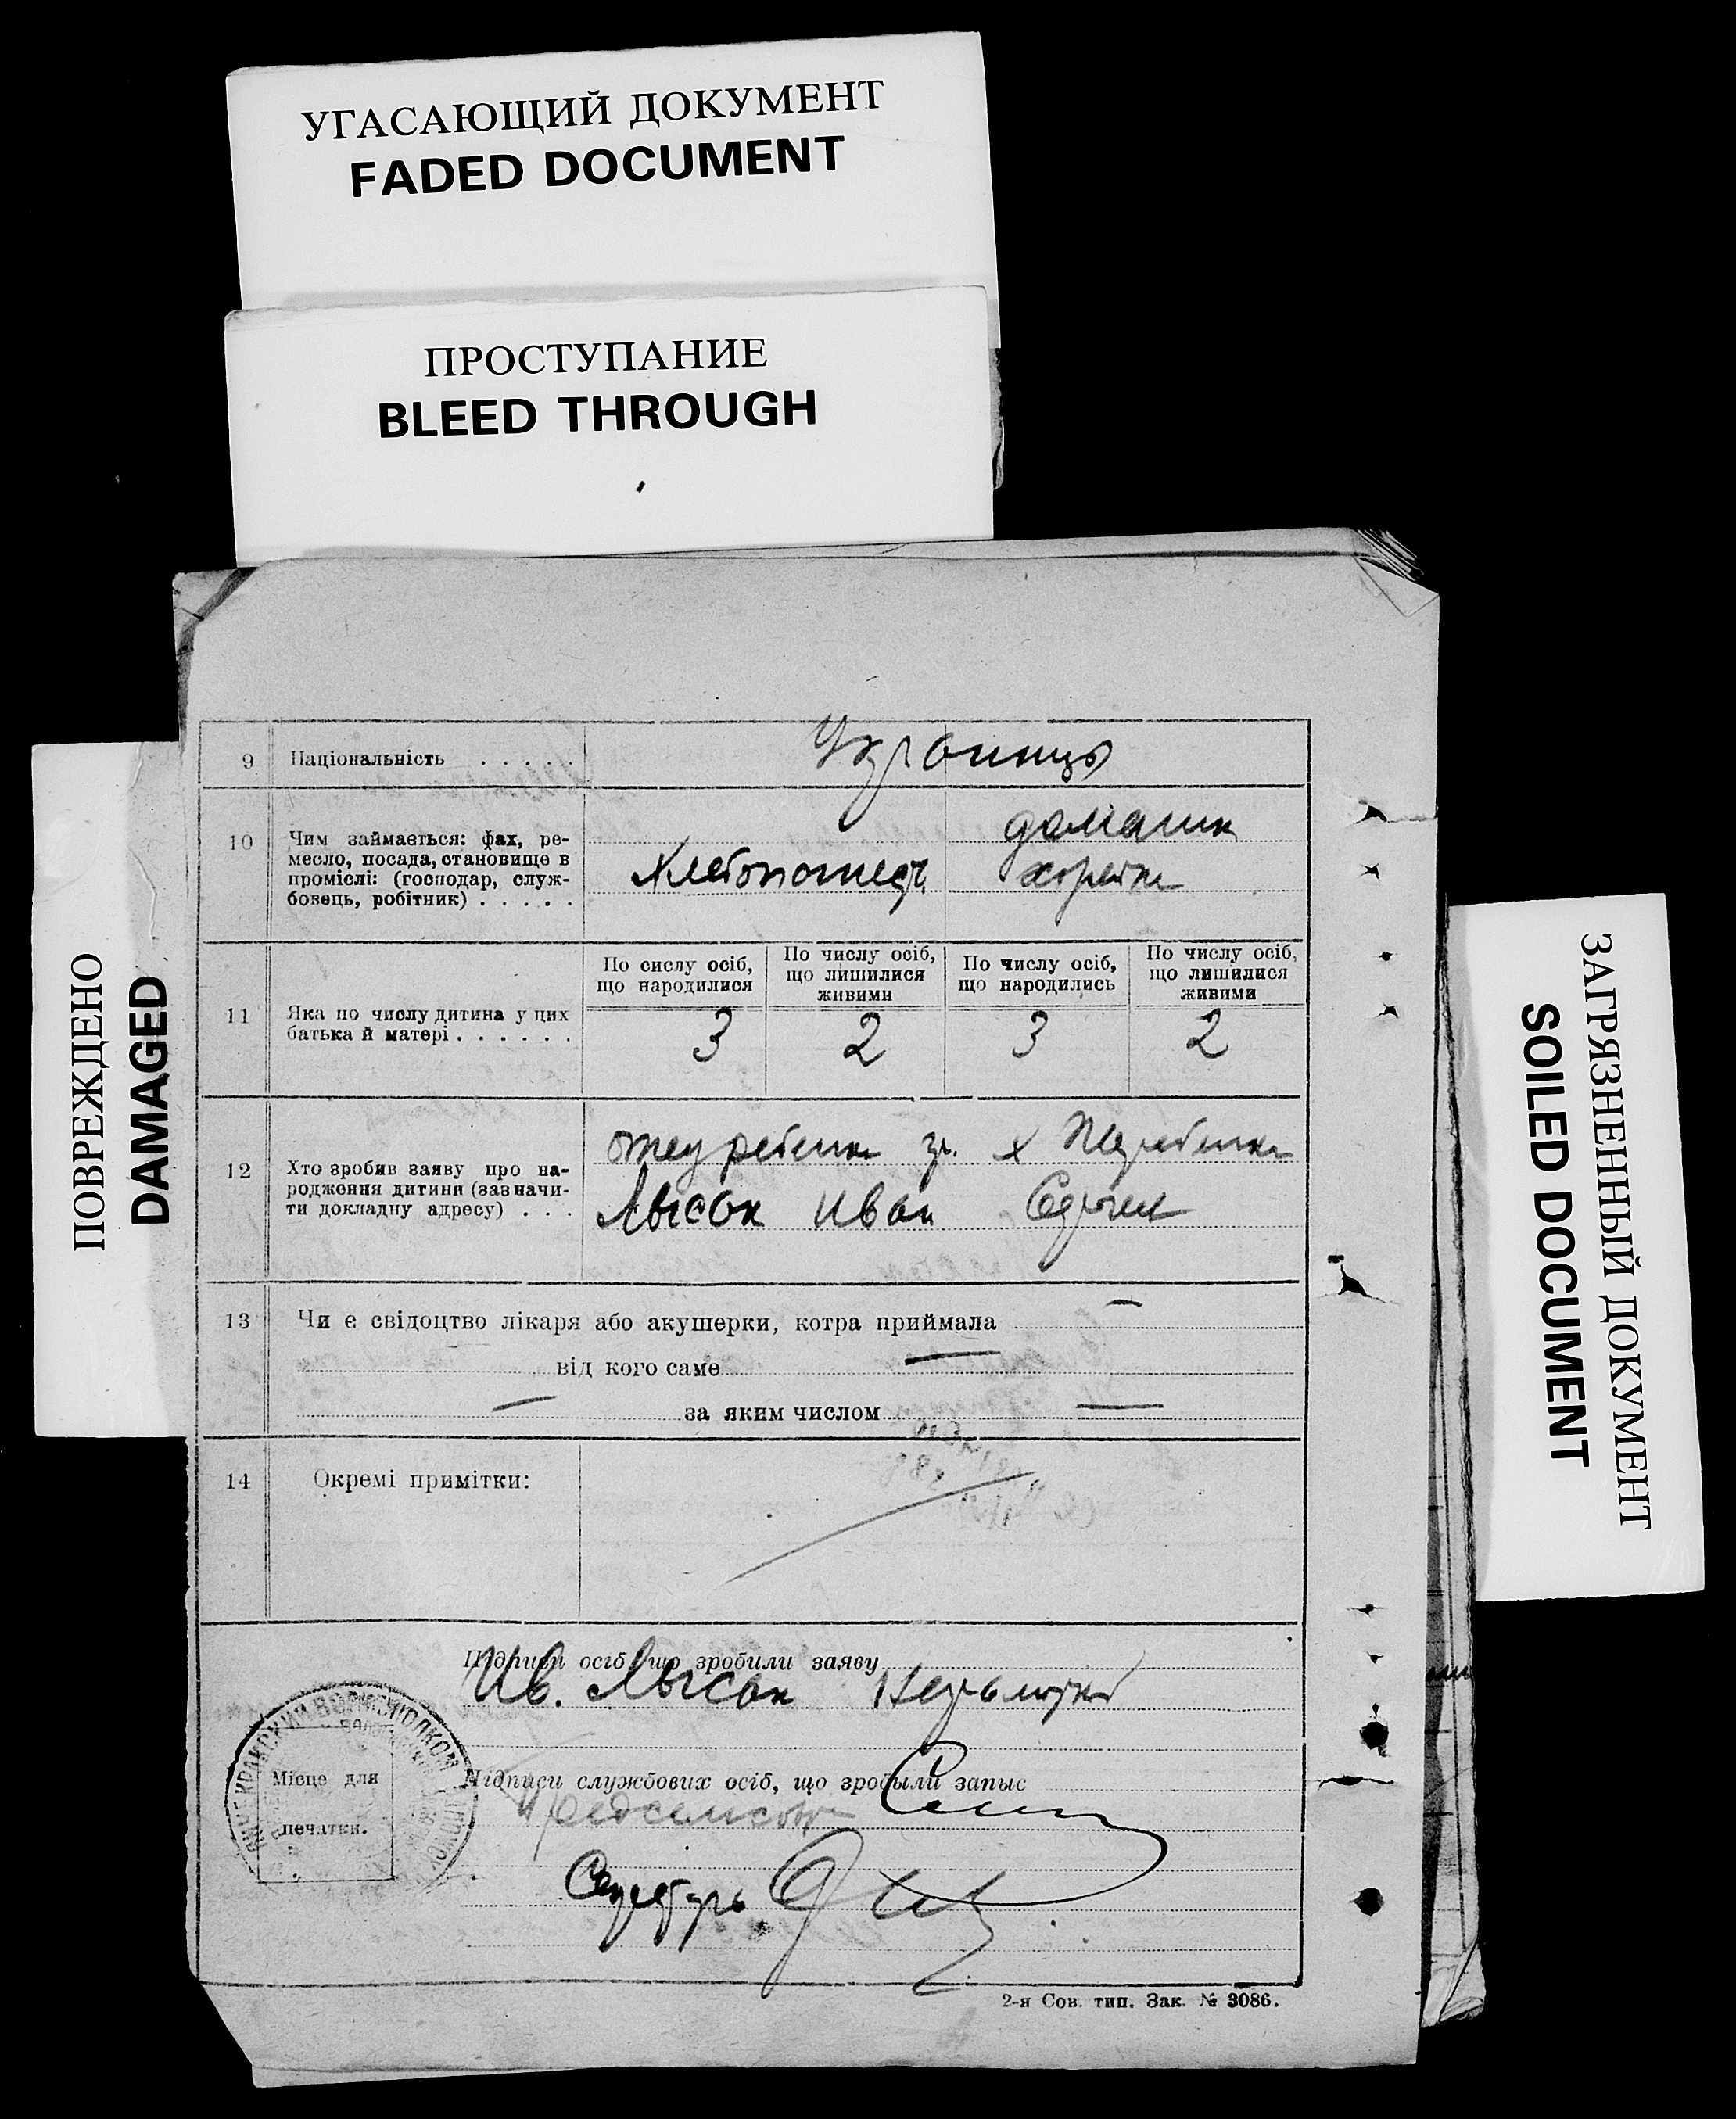 УГАСАЮЩИЙ ДОКУМЕНТ
FADED DOCUMENT
ПРОСТУПАНИЕ
BLEED THROUGH
ПОВРЕЖДЕНО
DAMAGED
ЗАГРЯЗНЕННЫЙ ДОКУМЕНТ
SOILED DOCUMENT
9 Національність . . . . . Украинцы
10 Чим займається: фах, ре-
месло, посада, становище в
проміслі: (господар, служ-
бовець, робітник) . . . . .
домашн
Хлебопашец
По сислу осіб,
що народилися
По числу осіб,
що лишилися
живими
По числу осіб,
що народились
По числу осіб,
що лишилися
живими
11 Яка по числу дитина у цих
батька й матері . . . . . .
3 2 3 2
12 Хто зробив заяву про на-
родження дитини (зазначи-
ти докладну адресу) . . .
отец ребенка гр. х
Лысак Иван
13 Чи є свідоцтво лікаря або акушерки, котра приймала —
від кого саме —
— за яким числом —
14 Окремі примітки:
Підписи осіб, що зробили заяву
Ив. Лысак
Місце для
печатки.
Підписи службових осіб, що зробыли запыс
Секретарь
2-я Сов. тип. Зак. № 3086.